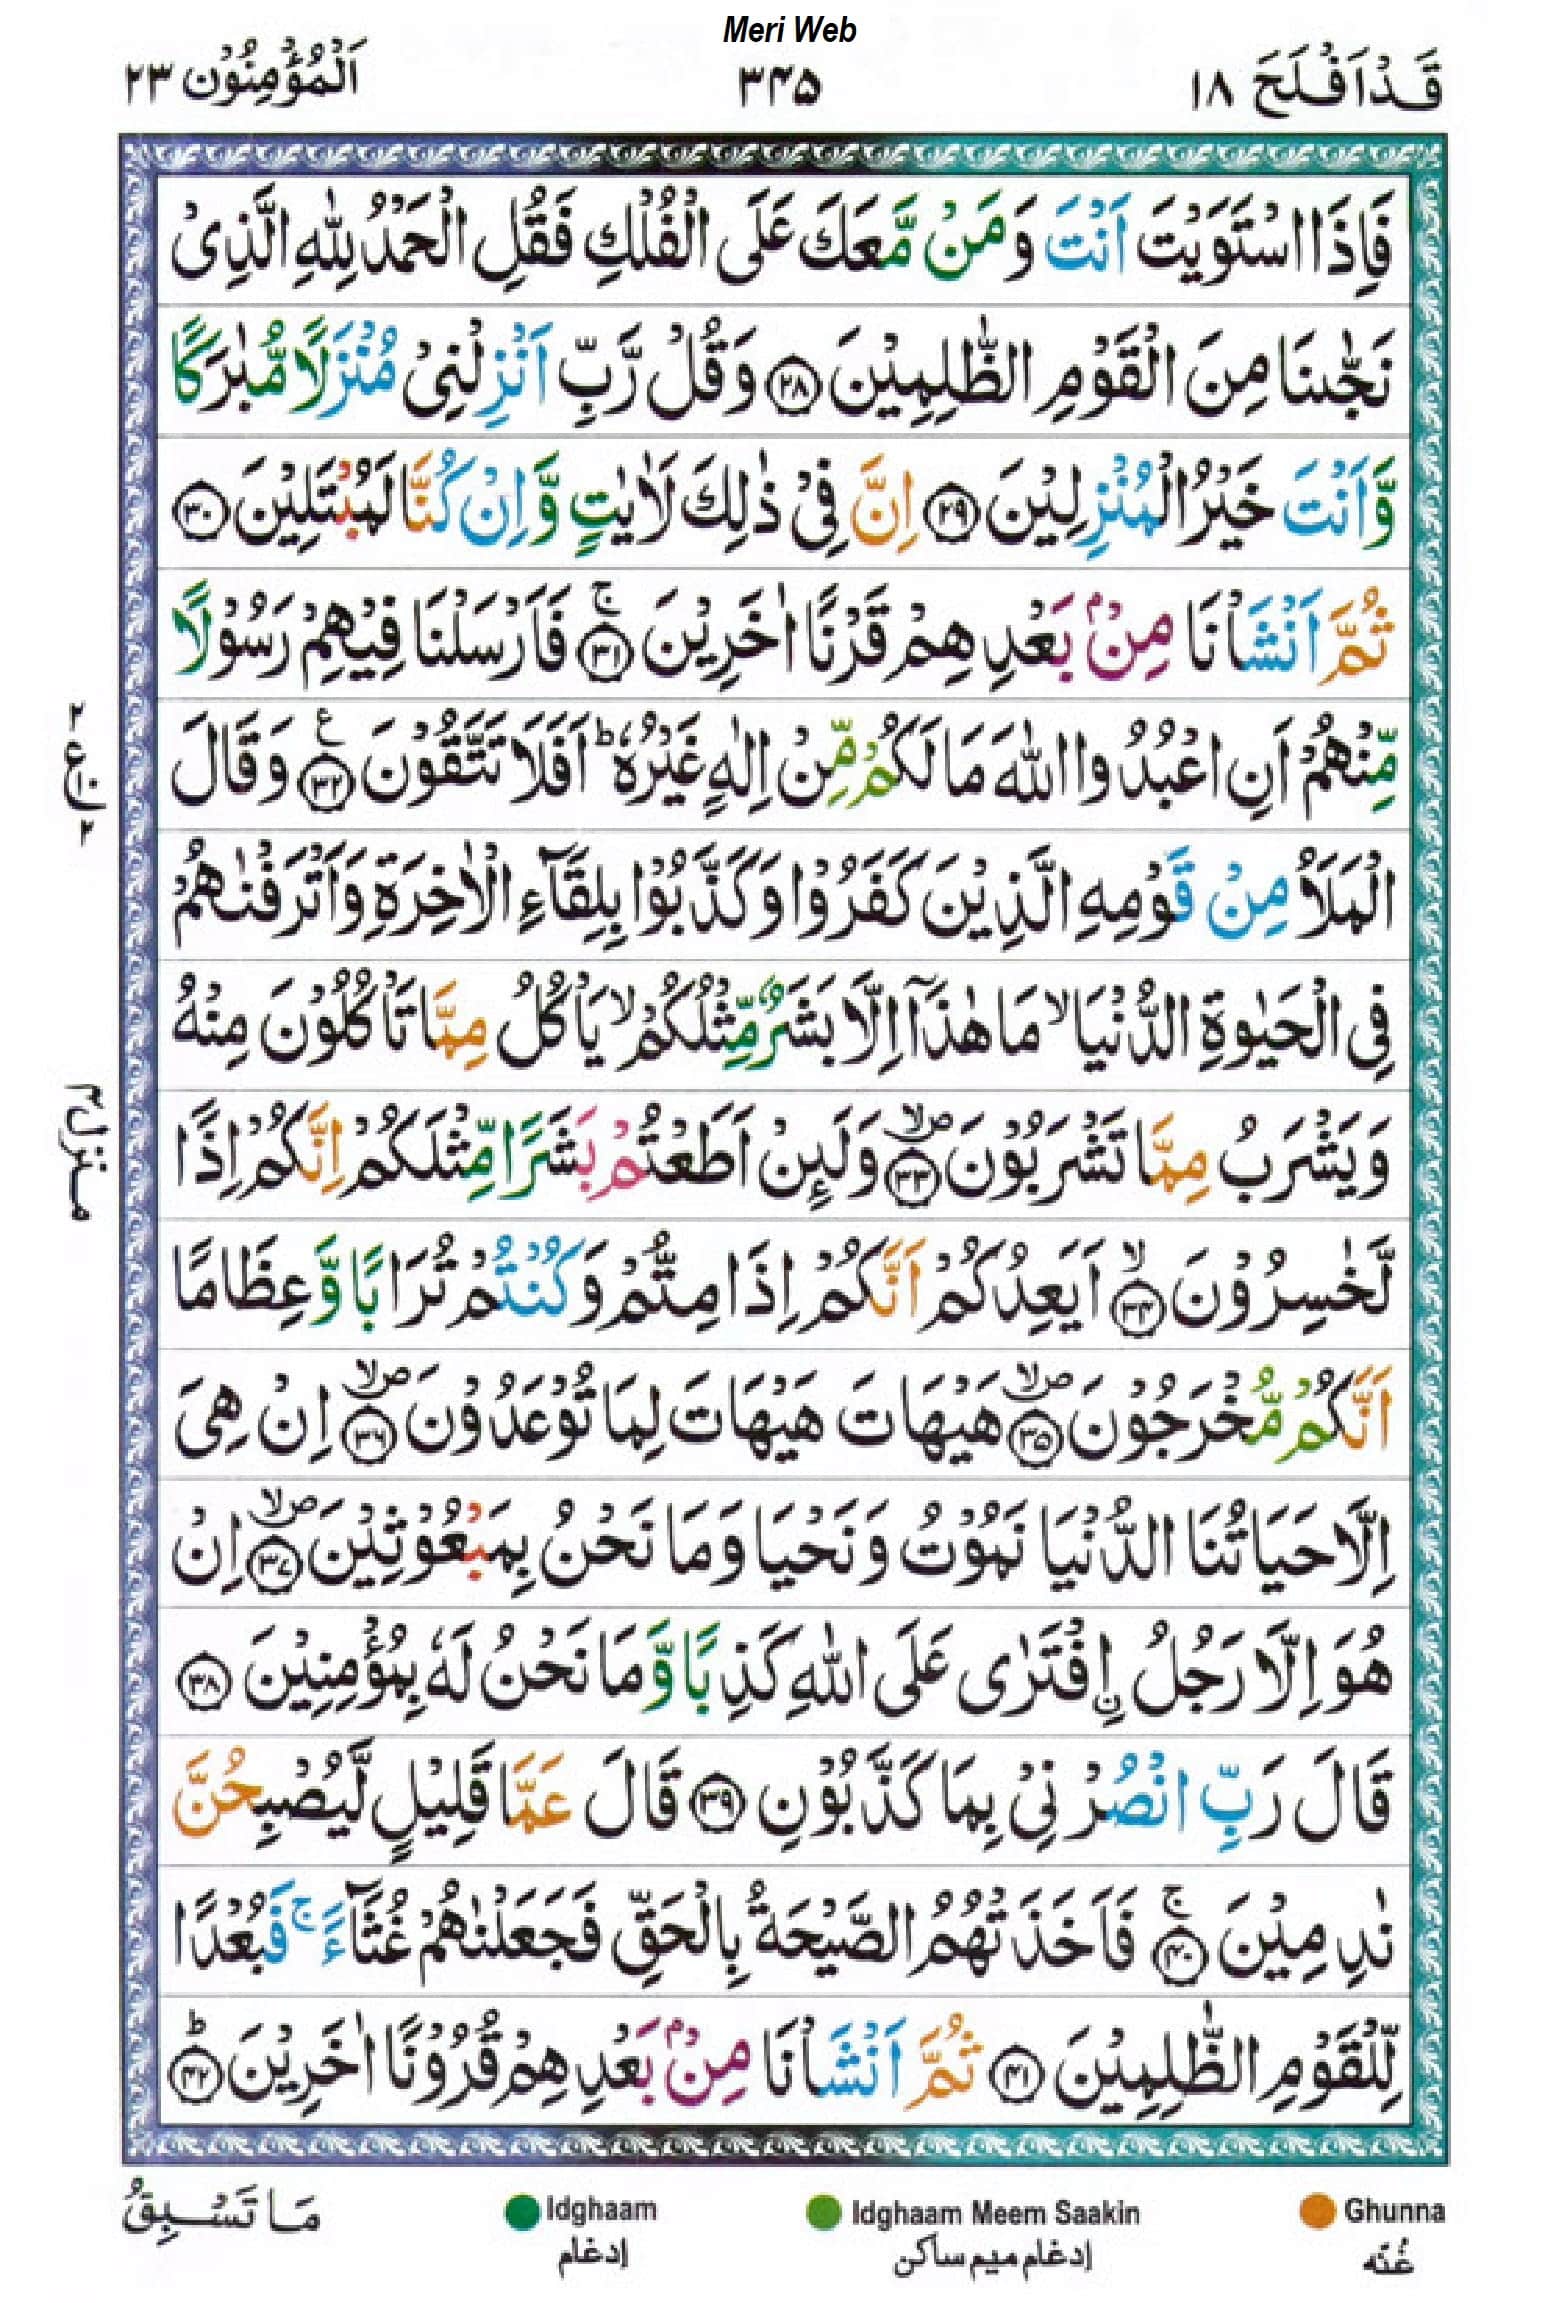 Meri Web
قَدْاَفْلَحَ ١٨
٣۴۵
اَلْمُؤْمِنُوْن ٢٣
فَاِذَا اسْتَوَيْتَ اَنْتَ وَمَنْ مَّعَكَ عَلَى الْفُلْكِ فَقُلِ الْحَمْدُ لِلّٰهِ الَّذِىْ
نَجّٰىنَا مِنَ الْقَوْمِ الظّٰلِمِيْنَ ۲۸ وَقُلْ رَّبِّ اَنْزِلْنِىْ مُنْزَلًا مُّبٰرَكًا
وَّاَنْتَ خَيْرُ الْمُنْزِلِيْنَ ۲۹ اِنَّ فِىْ ذٰلِكَ لَاٰيٰتٍ وَّاِنْ كُنَّا لَمُبْتَلِيْنَ ۳۰
ثُمَّ اَنْشَاْنَا مِنْۢ بَعْدِهِمْ قَرْنًا اٰخَرِيْنَ ۳۱ۚ فَاَرْسَلْنَا فِيْهِمْ رَسُوْلًا
مِّنْهُمْ اَنِ اعْبُدُوا اللّٰهَ مَا لَكُمْ مِّنْ اِلٰهٍ غَيْرُهٗ ؕ اَفَلَا تَتَّقُوْنَ ۳۲ ع وَقَالَ
الْمَلَاُ مِنْ قَوْمِهِ الَّذِيْنَ كَفَرُوْا وَكَذَّبُوْا بِلِقَآءِ الْاٰخِرَةِ وَاَتْرَفْنٰهُمْ
فِى الْحَيٰوةِ الدُّنْيَا ۙ مَا هٰذَاۤ اِلَّا بَشَرٌ مِّثْلُكُمْ ۙ يَاْكُلُ مِمَّا تَاْكُلُوْنَ مِنْهُ
وَيَشْرَبُ مِمَّا تَشْرَبُوْنَ ۳۳ صلا وَلَئِنْ اَطَعْتُمْ بَشَرًا مِّثْلَكُمْ اِنَّكُمْ اِذًا
لَّخٰسِرُوْنَ ۳۴ۙ اَيَعِدُكُمْ اَنَّكُمْ اِذَا مِتُّمْ وَكُنْتُمْ تُرَابًا وَّعِظَامًا
اَنَّكُمْ مُّخْرَجُوْنَ ۳۵ صلا هَيْهَاتَ هَيْهَاتَ لِمَا تُوْعَدُوْنَ ۳۶ صلا اِنْ هِىَ
اِلَّا حَيَاتُنَا الدُّنْيَا نَمُوْتُ وَنَحْيَا وَمَا نَحْنُ بِمَبْعُوْثِيْنَ ۳۷ صلا اِنْ
هُوَ اِلَّا رَجُلُ ۨافْتَرٰى عَلَى اللّٰهِ كَذِبًا وَّمَا نَحْنُ لَهٗ بِمُؤْمِنِيْنَ ۳۸
قَالَ رَبِّ انْصُرْنِىْ بِمَا كَذَّبُوْنِ ۳۹ قَالَ عَمَّا قَلِيْلٍ لَّيُصْبِحُنَّ
نٰدِمِيْنَ ۴۰ۚ فَاَخَذَتْهُمُ الصَّيْحَةُ بِالْحَقِّ فَجَعَلْنٰهُمْ غُثَآءً ۚ فَبُعْدًا
لِّلْقَوْمِ الظّٰلِمِيْنَ ۴۱ ثُمَّ اَنْشَاْنَا مِنْۢ بَعْدِهِمْ قُرُوْنًا اٰخَرِيْنَ ۴۲ؕ
۲ ع ۲
منزل ۴
Ghunna
غُنّه
Idghaam Meem Saakin
إدغام ميم ساكن
Idghaam
إدغام
مَا تَسْبِقُ